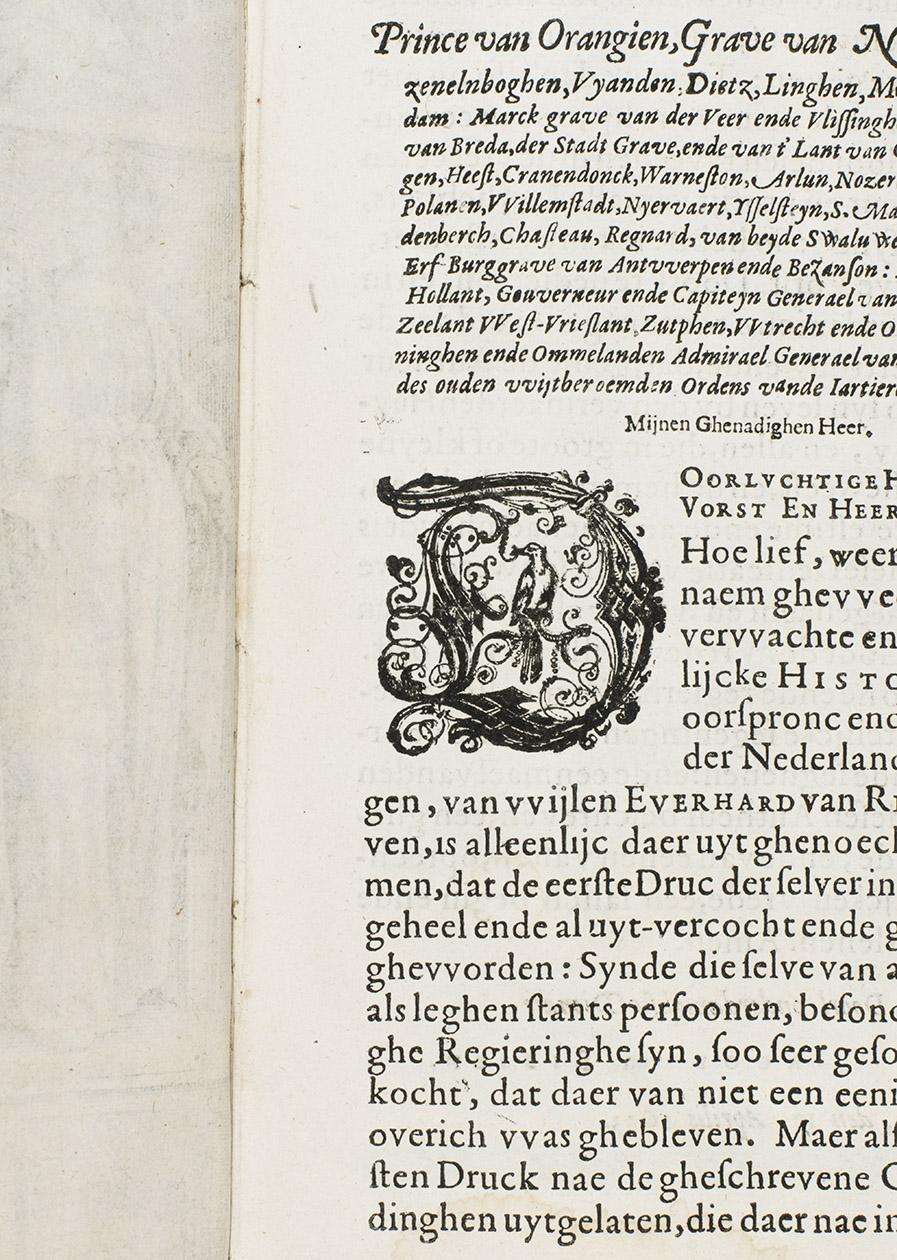 Prince van Orangien, Grave van N
zenelnboghen, Vyanden, Dietz, Linghen, M
dam : Marck grave van der Veer ende Vlissingh
van Breda, der Stadt Grave, ende van t' Lant van
gen, Heest, Cranendonck, Warneston, Arlun, Nozer
Polanen, VVillemstadt, Nyervaert, Ysselsteyn, S. Ma
denberch, Chasteau, Regnard, van beyde Swaluwe
Erf-Burggrave van Antvverpen ende Bezanson :
Hollant, Gouverneur ende Capiteyn Generael van
Zeelant VVest-Vrieslant, Zutphen, VVtrecht ende O
ninghen ende Ommelanden Admirael Generael van
des ouden vvijtberoemden Ordens vande Iartier
Mijnen Ghenadighen Heer.
DOORLVCHTIGE H
VORST EN HEER
Hoe lief, weer
naem ghevve
vervvachte en
lijcke HISTO
oorspronc end
der Nederland
gen, van vvijlen EVERHARD van RE
ven, is alleenlijc daer uyt ghenoech
men, dat de eerste Druc der selver in
geheel ende al uyt-vercocht ende g
ghevvorden : Synde die selve van a
als leghen stants persoonen, besond
ghe Regieringhe syn, soo seer geso
kocht, dat daer van niet een eeni
overich vvas ghebleven. Maer als
sten Druck nae de gheschrevene C
dinghen uytgelaten, die daer nae in